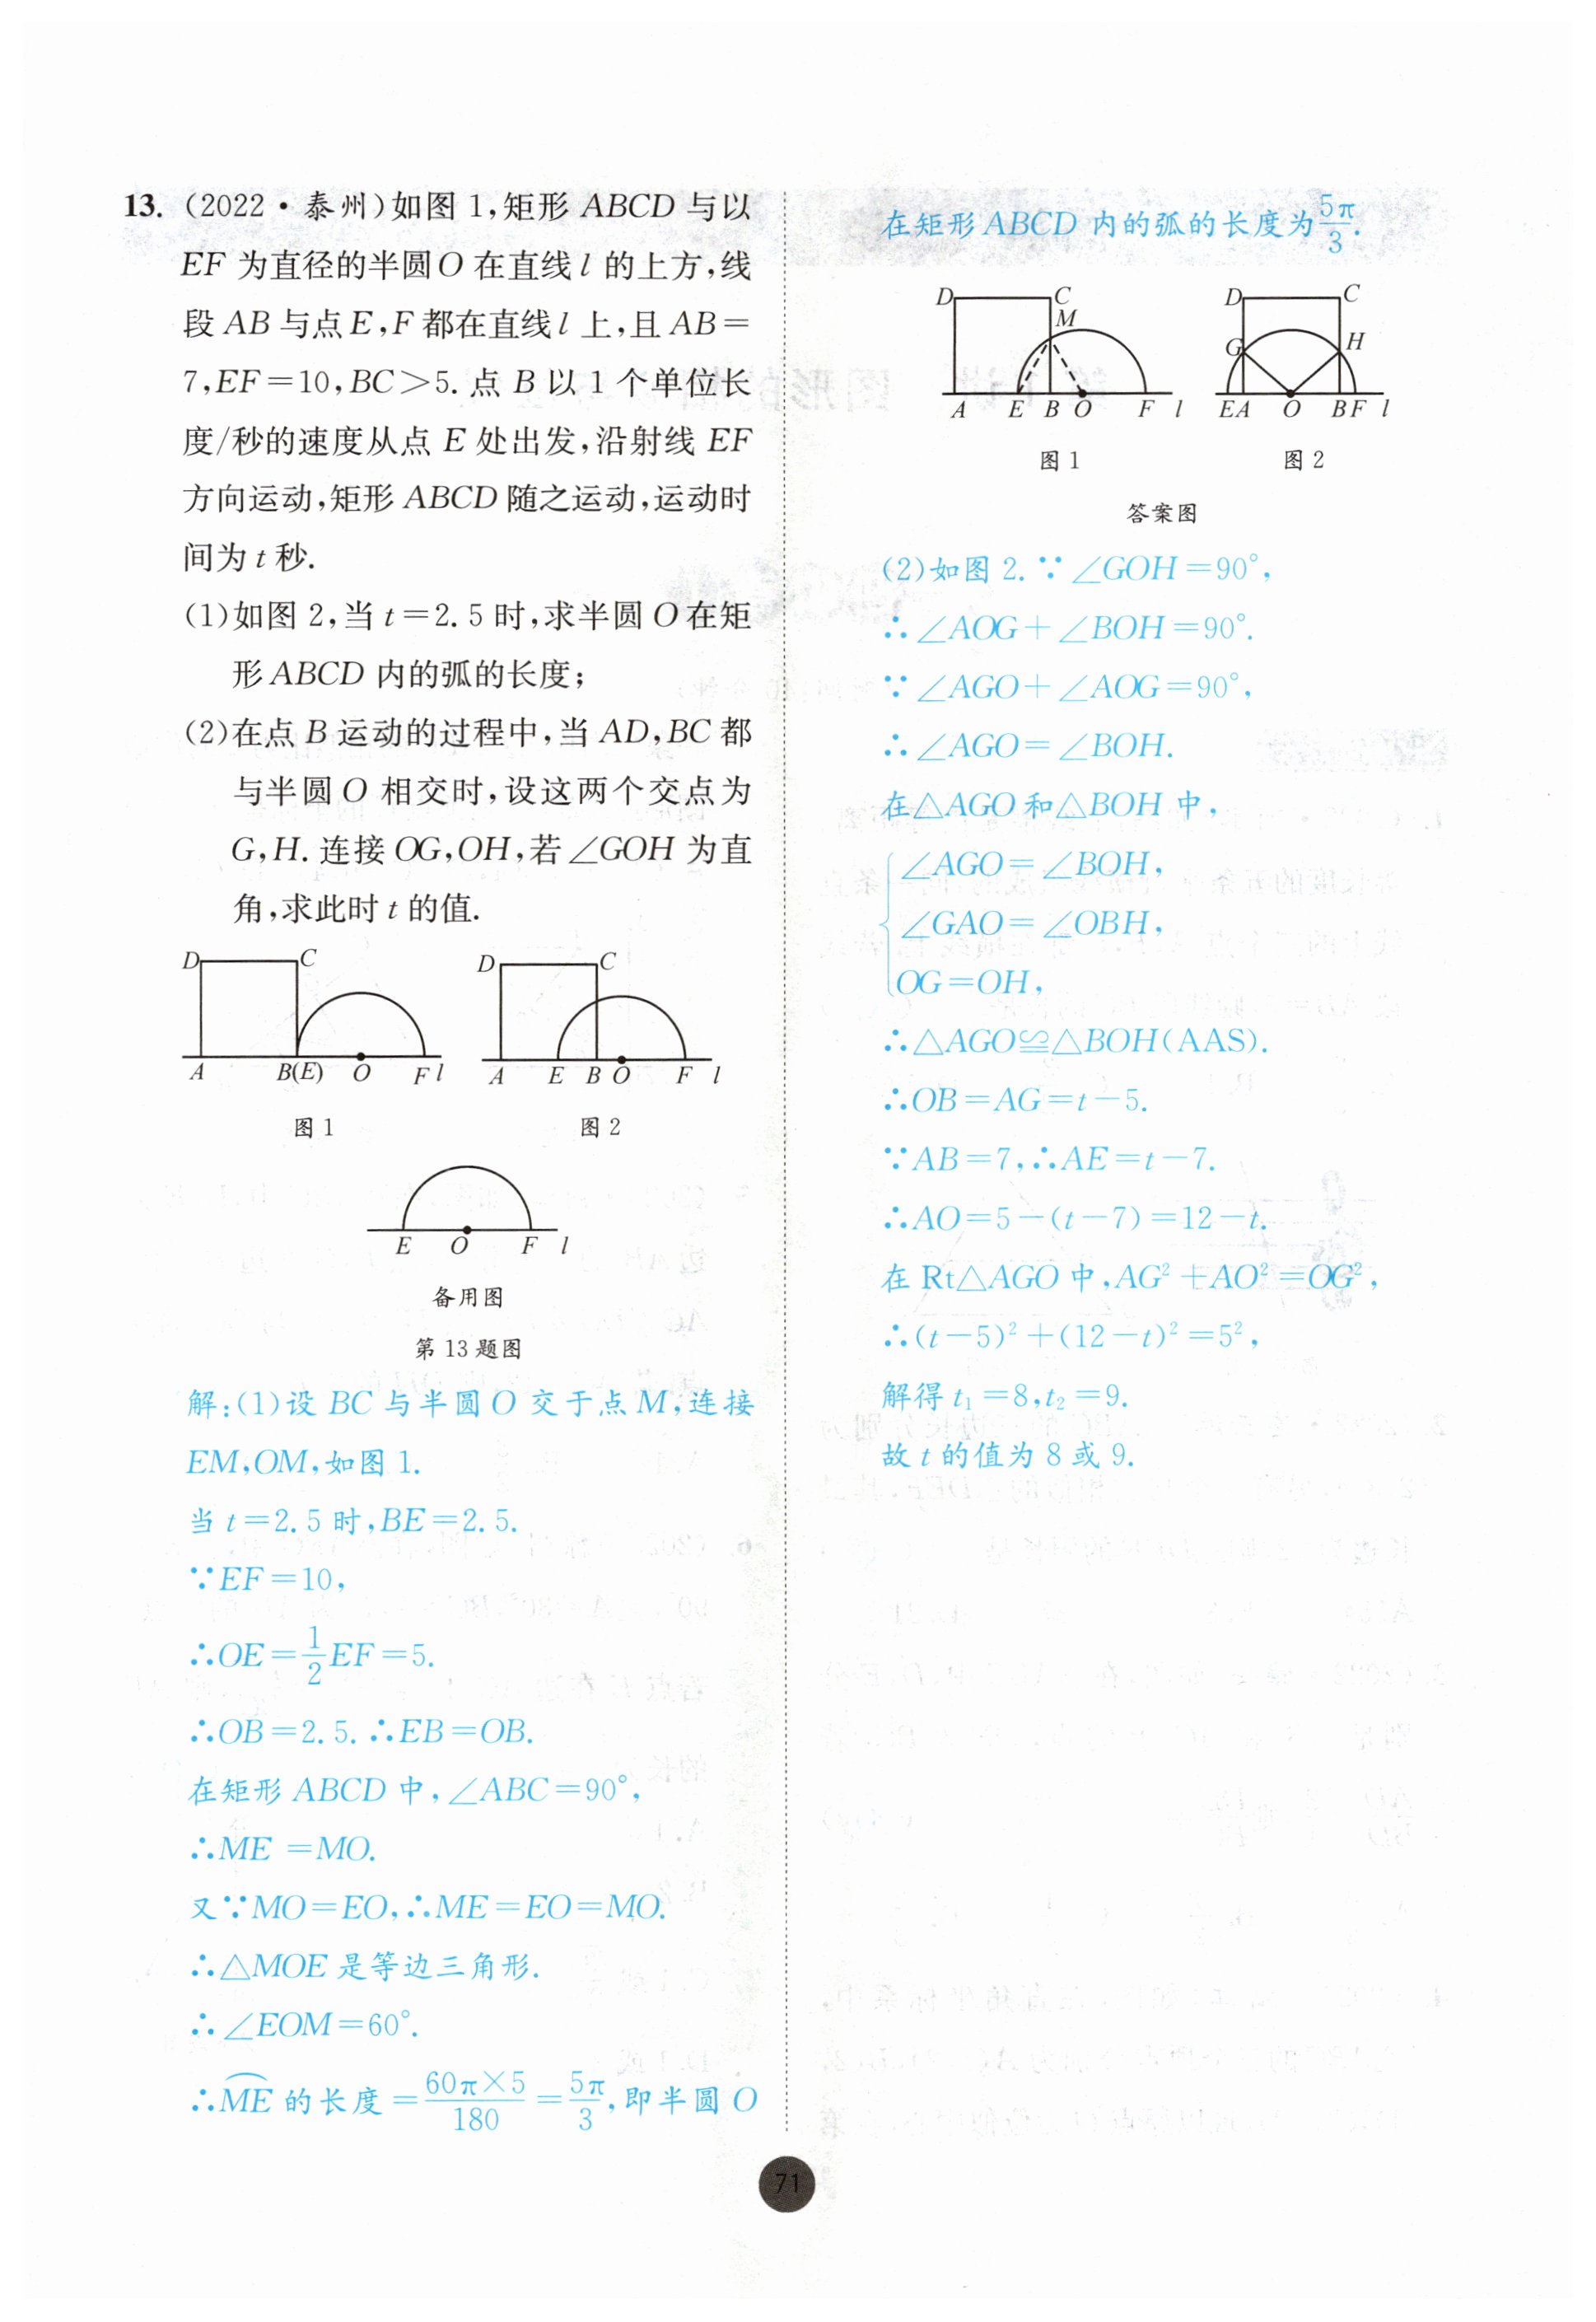 13. (2022·泰州)如图 1,矩形 ABCD 与以
EF 为直径的半圆 O 在直线 l 的上方,线
段 AB 与点 E,F 都在直线 l 上,且 AB=
7,EF=10,BC>5. 点 B 以 1 个单位长
度/秒的速度从点 E 处出发,沿射线 EF
方向运动,矩形 ABCD 随之运动,运动时
间为 t 秒.
(1)如图 2,当 t=2.5 时,求半圆 O 在矩
形 ABCD 内的弧的长度;
(2)在点 B 运动的过程中,当 AD,BC 都
与半圆 O 相交时,设这两个交点为
G,H. 连接 OG,OH,若∠GOH 为直
角,求此时 t 的值.
D C
A B(E) O F l
图 1
D C
A E B O F l
图 2
E O F l
备用图
第 13 题图
解:(1)设 BC 与半圆 O 交于点 M,连接
EM,OM,如图 1.
当 t=2.5 时,BE=2.5.
∵EF=10,
∴OE=1/2EF=5.
∴OB=2.5. ∴EB=OB.
在矩形 ABCD 中,∠ABC=90°,
∴ME =MO.
又∵MO=EO,∴ME=EO=MO.
∴△MOE 是等边三角形.
∴∠EOM=60°.
∴⌒ME 的长度=60π×5/180=5π/3,即半圆 O
在矩形 ABCD 内的弧的长度为5π/3.
D C
M
A E B O F l
图 1
D C
G H
E A O B F l
图 2
答案图
(2)如图 2. ∵∠GOH=90°,
∴∠AOG+∠BOH=90°.
∵∠AGO+∠AOG=90°,
∴∠AGO=∠BOH.
在△AGO 和△BOH 中,
∠AGO=∠BOH,
∠GAO=∠OBH,
OG=OH,
∴△AGO≌△BOH(AAS).
∴OB=AG=t-5.
∵AB=7,∴AE=t-7.
∴AO=5-(t-7)=12-t.
在 Rt△AGO 中,AG²+AO²=OG²,
∴(t-5)²+(12-t)²=5²,
解得 t₁=8,t₂=9.
故 t 的值为 8 或 9.
71